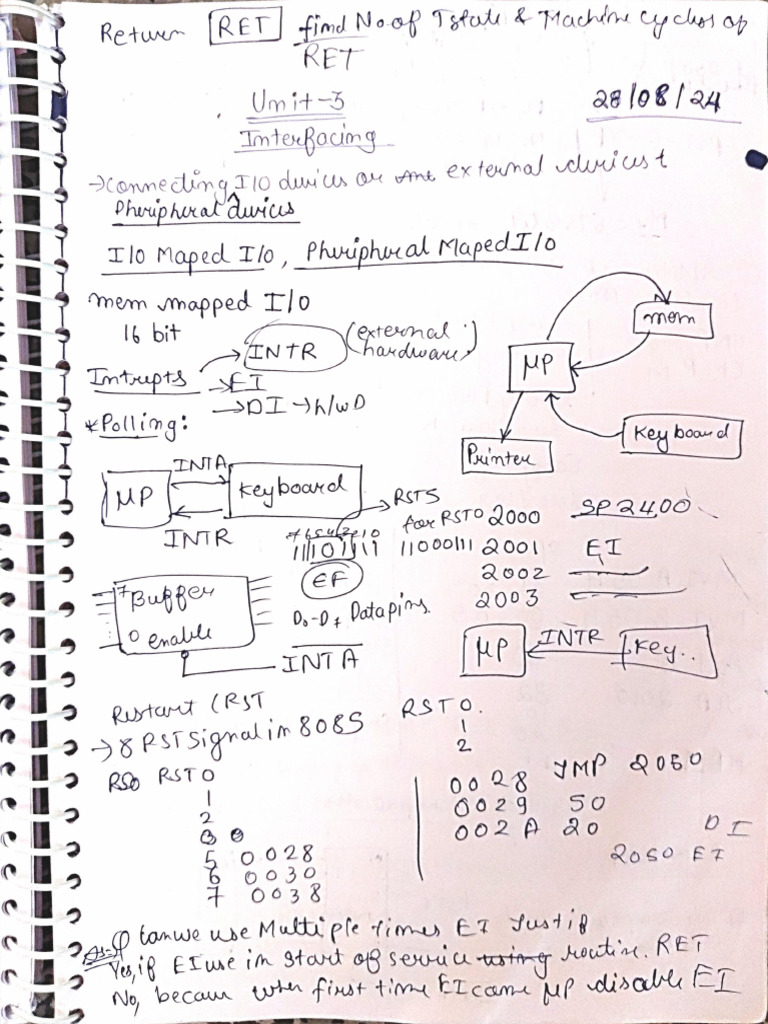 Return RET find No of Tstate & Machine Cycles of
RET
Unit-3
28/08/24
Interfacing
→ connecting I/O devices or external devices
Pheripheral devices
I/O Maped I/O, Pheripheral Maped I/O
mem mapped I/O
16 bit
mem
INTR (external hardware)
MP
Intrupts
→ EI
→ DI → h/w D
*Polling:
Keyboard
Printer
INTA
MP
Keyboard
INTR
RST5
for RST0 2000 SP 2400
76543210
11101111
11000111 2001 EI
EF
2002
2003
7 Buffer
0 enable
D0-D7 Datapins.
INTA
MP INTR Key..
Restart (RST
RST 0.
1
2
→ 8 RST Signal in 8085
RS0 RST 0
1
2
5 0028
6 0030
7 0038
0028 JMP 2050
0029 50
002A 20
DI
2050 EI
Q can we use Multiple times EI Justif
Yes, if EI use in start of service using routine. RET
No, becaue when first time EI came MP disable EI